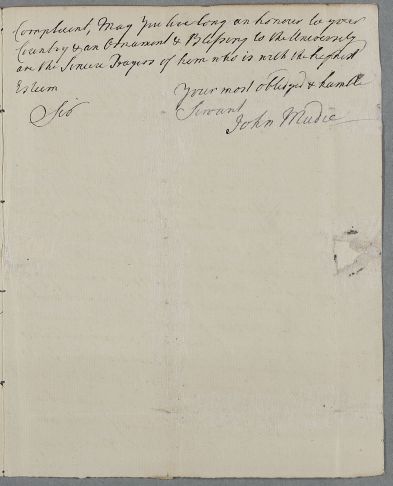 Compliment, May You live long an honour to your
Country & an Ornament & Blessing to the University
are the Sincere Prayers of him who is with the highest
Esteem
Sir
Your most obliged & humble
Servant
John Mudie